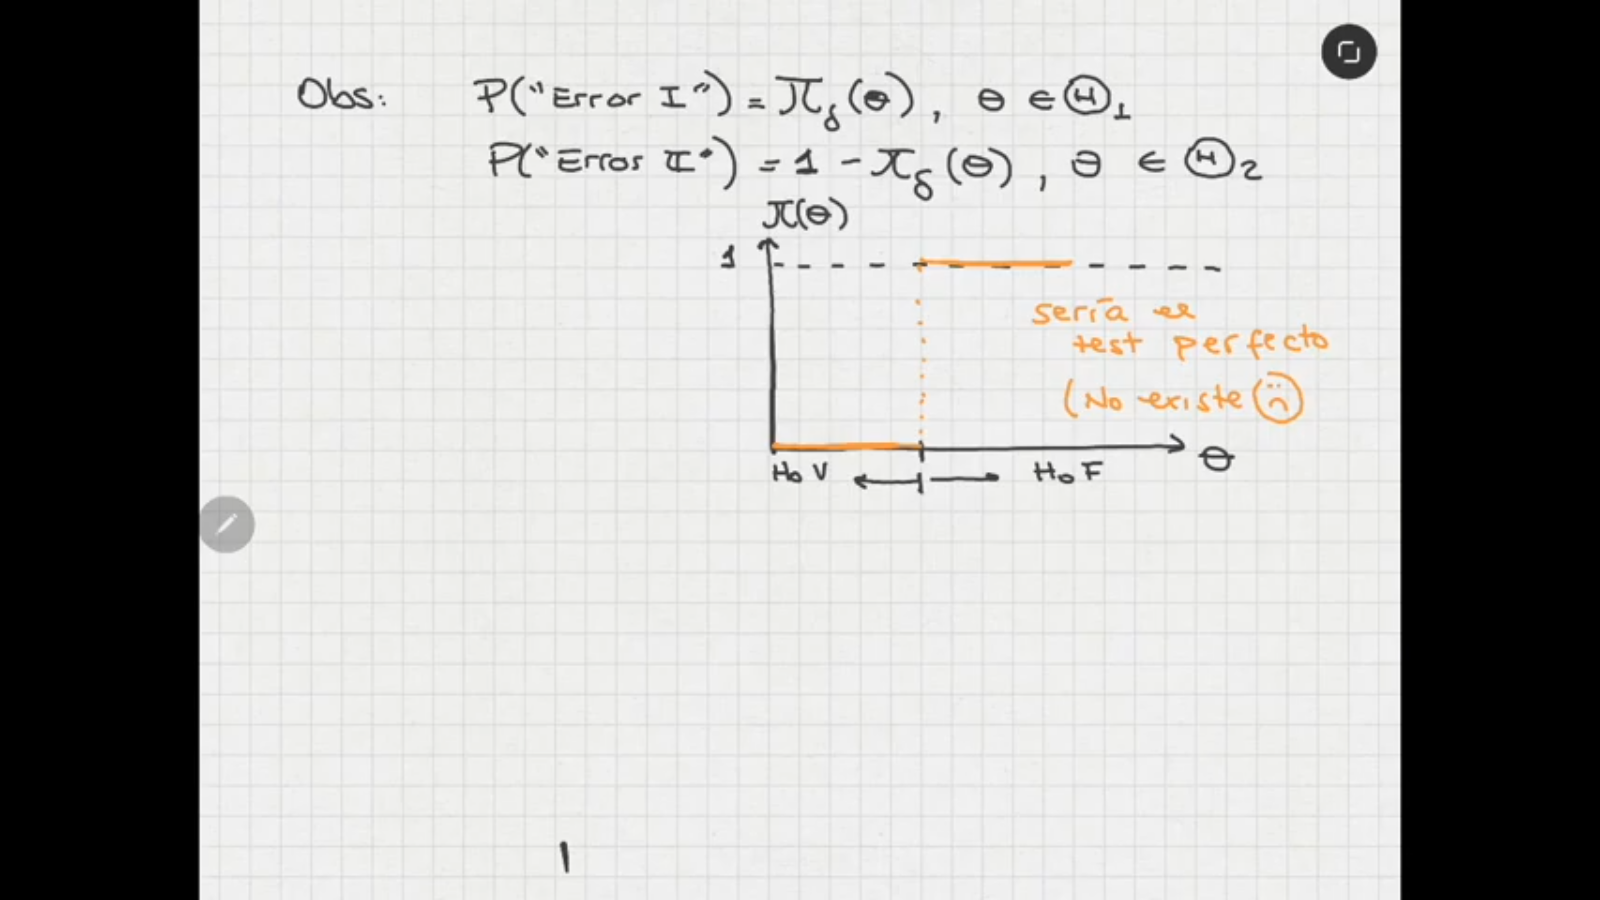 Obs: P("Error I") = π_δ(θ), θ ∈ Θ_1
P("Error II") = 1 - π_δ(θ), θ ∈ Θ_2
π(θ)
1
sería el
test perfecto
(No existe ☹)
θ
H_0 V ← | → H_0 F